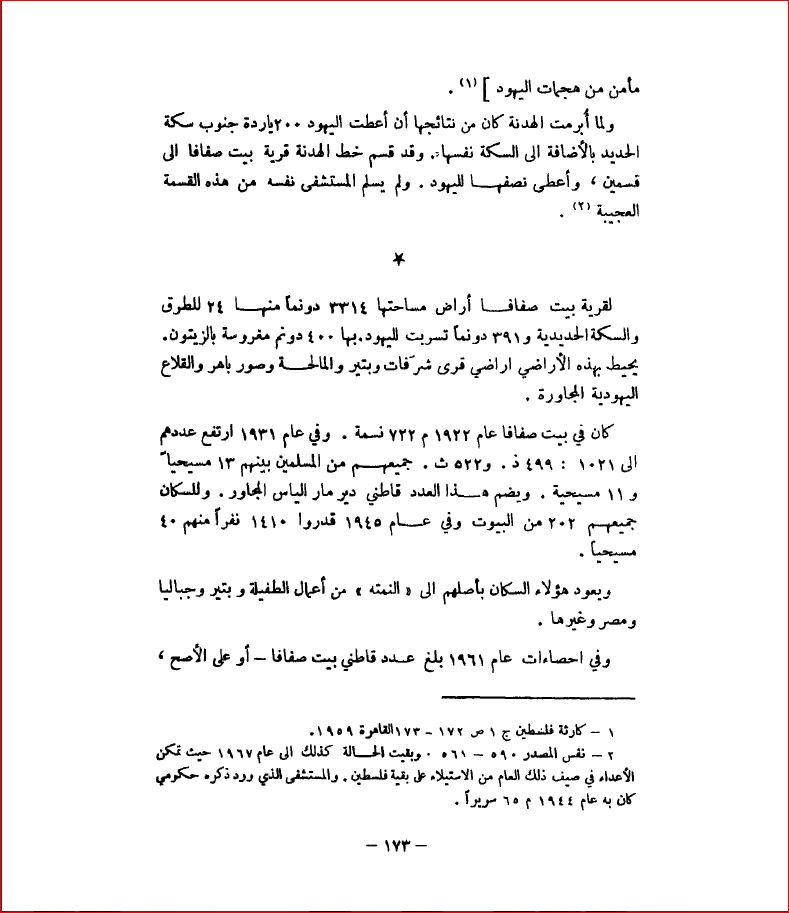 مأمن من هجمات اليهود ] (١) .
ولما أُبرمت الهدنة كان من نتائجها أن أعطت اليهود ٢٠٠ ياردة جنوب سكة
الحديد بالأضافة الى السكة نفسها. وقد قسم خط الهدنة قرية بيت صفافا الى
قسمين ، وأعطى نصفهـا لليهود . ولم يسلم المستشفى نفسه من هذه القسمة
العجيبة (٢) .
★
لقرية بيت صفافـا أراض مساحتها ٣٣١٤ دونماً منهـا ٢٤ للطرق
والسكة الحديدية و ٣٩١ دونماً تسربت لليهود. بها ٤٠٠ دونم مغروسة بالزيتون.
يحيط بهذه الأراضي اراضي قرى شرَفات وبتير والمالحـة وصور باهر والقلاع
اليهودية المجاورة .
كان في بيت صفافا عام ١٩٢٢ م ٧٢٢ نسمة . وفي عام ١٩٣١ ارتفع عددهم
الى ١٠٢١ : ٤٩٩ ذ . و٥٢٢ ث . جميعهـم من المسلمين بينهم ١٣ مسيحياً
و ١١ مسيحية . ويضم هـذا العدد قاطني دير مار الياس المجاور . وللسكان
جميعهم ٢٠٢ من البيوت وفي عـام ١٩٤٥ قدروا ١٤١٠ نفراً منهم ٤٠
مسيحياً .
ويعود هؤلاء السكان بأصلهم الى « النمته » من أعمال الطفيلة و بتير وجباليا
ومصر وغيرها .
وفي احصاءات عام ١٩٦١ بلغ عـدد قاطني بيت صفافا – أو على الأصح ،
١ – كارثة فلسطين ج ١ ص ١٧٢ – ١٧٣ القاهرة ١٩٥٩.
٢ – نفس المصدر ٥٩٠ – ٥٦١ . وبقيت الحـالة كذلك الى عام ١٩٦٧ حيث تمكن
الأعداء في صيف ذلك العام من الاستيلاء على بقية فلسطين . والمستشفى الذي ورد ذكره حكومي
كان به عام ١٩٤٤ م ٦٥ سريراً .
– ١٧٣ –